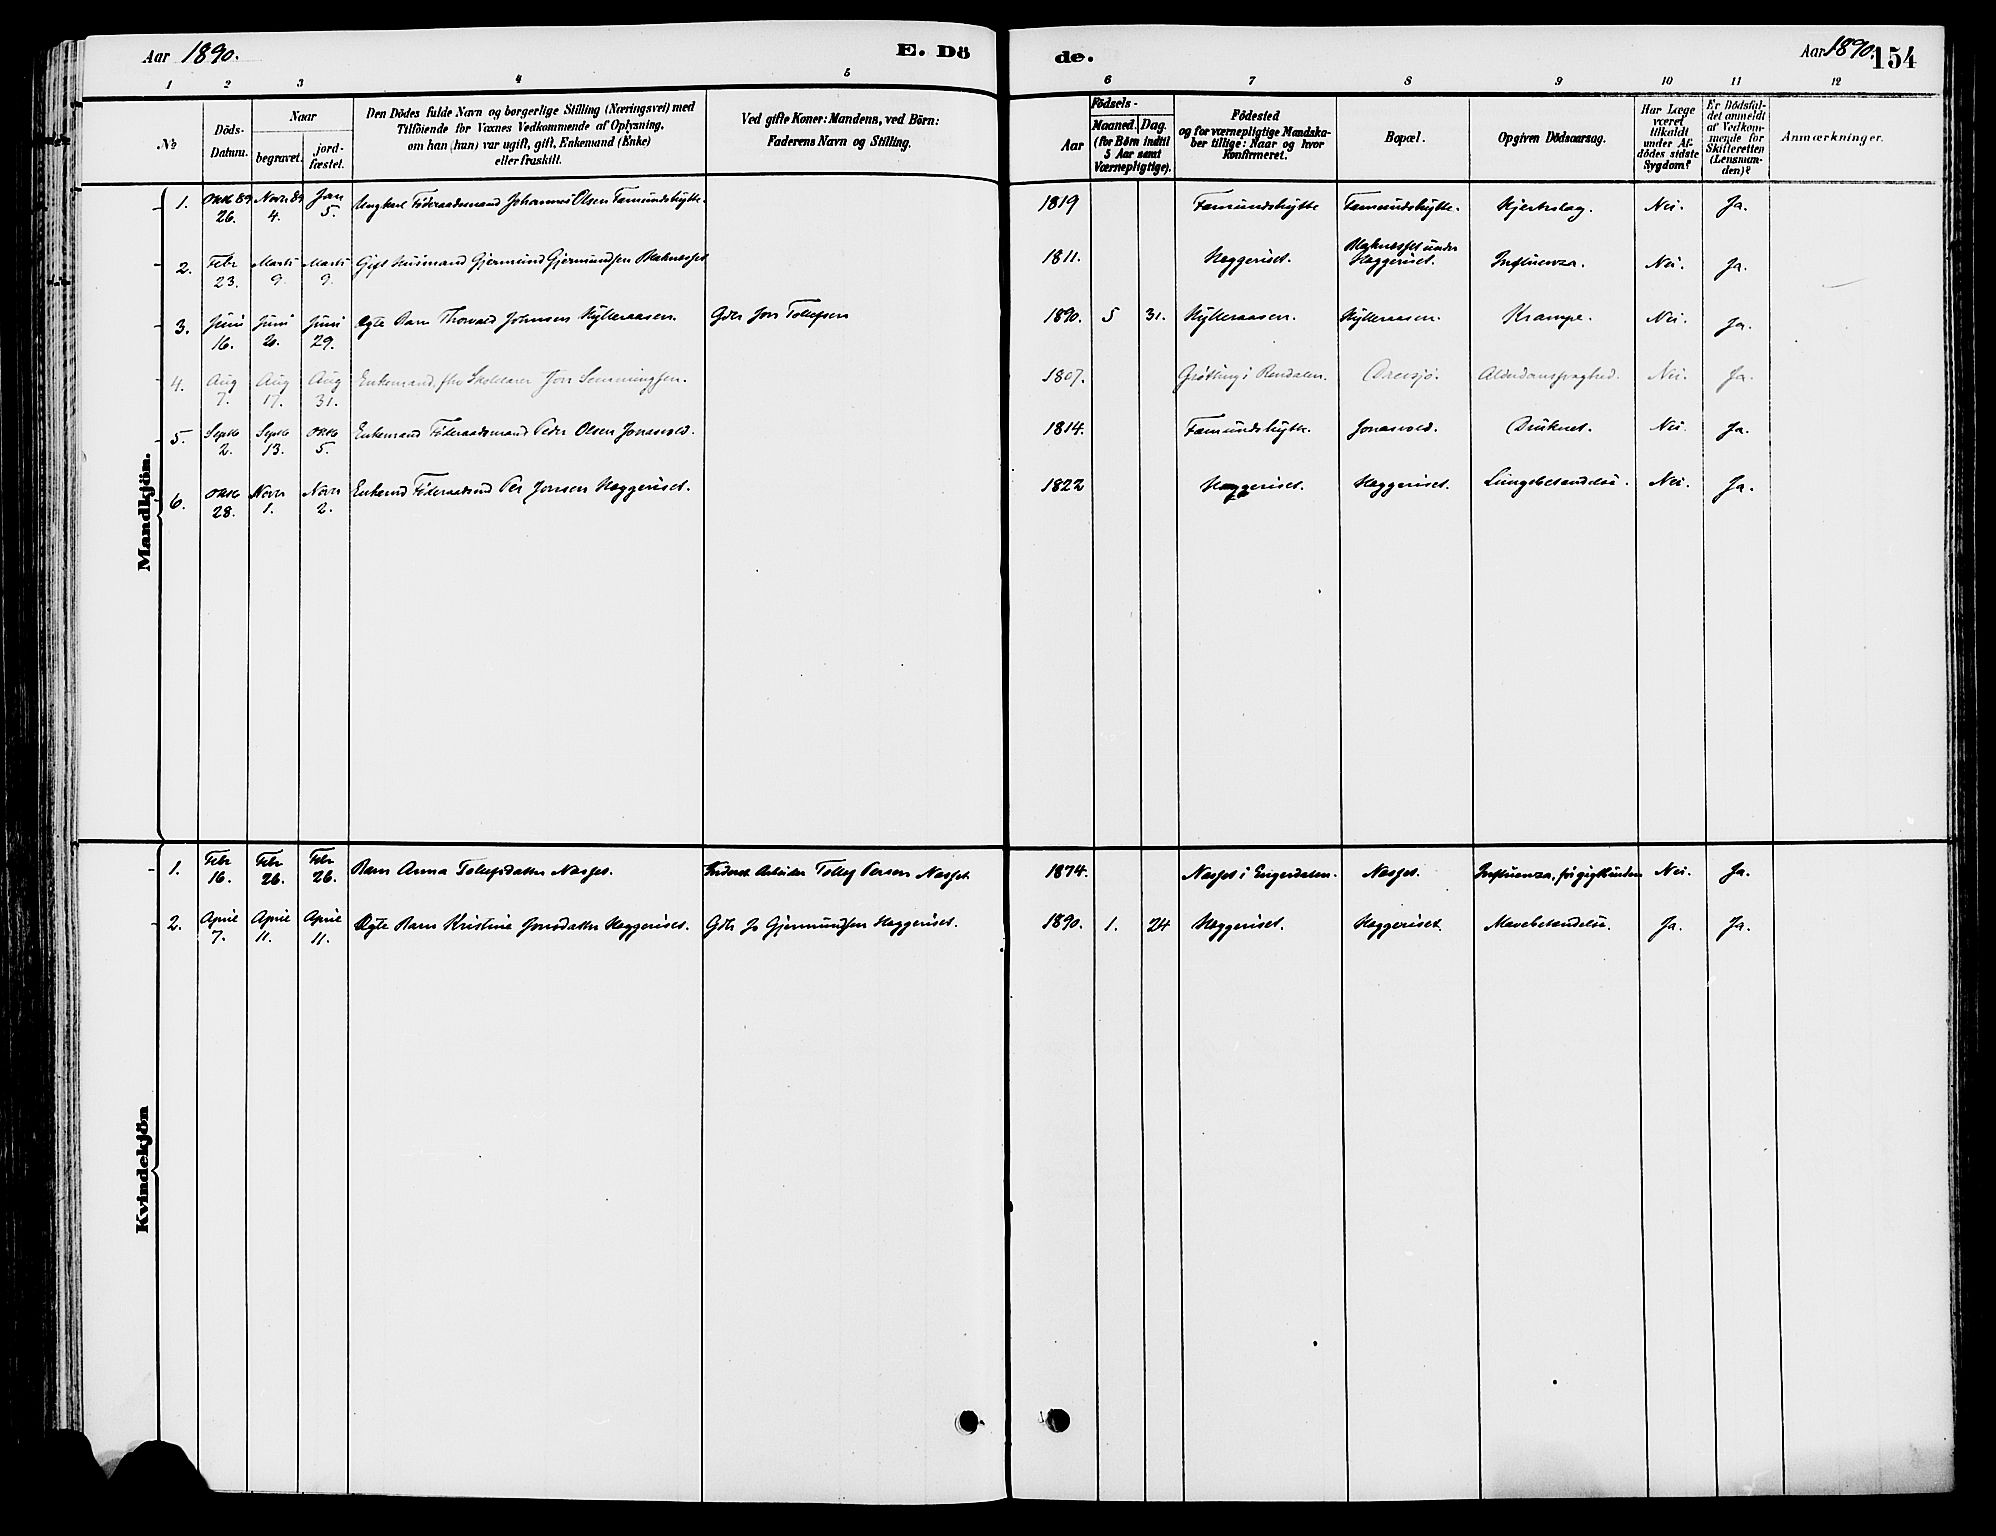 Aar 1890. E. Dö de. Aar 1890. 154
1 2 3 4 5 6 7 8 9 10 11 12
№ Döds-Datum. Naar begravet. jord-fæstet. Den Dödes fulde Navn og borgerlige Stilling (Næringsvei) med Tilföiende for Voxnes Vedkommende af Oplysning, om han (hun) var ugift, gift, Enkemand (Enke) eller fraskilt. Ved gifte Koner: Mandens, ved Börn: Faderens Navn og Stilling. Födsels- Aar Maaned. Dag. (for Børn indtil 5 Aar samt Værnepligtige). Födested og for værnepligtige Mandskaber tillige: Naar og hvor Konfirmeret. Bopæl. Opgiven Dödsaarsag. Har Læge været tilkaldt under Afdödes sidste Sygdom? Er Dödsfaldet anmeldt af Vedkommende for Skifteretten (Lensmanden)? Anmærkninger.
Mandkjön.
1. Oktb 89 26. Novr. 89 4. Jan 5. Ungkarl Föderaadsmand Johannes Olsen Fæmundshytte. 1819 Fæmundshytte Fæmundshytte. Hjerteslag. Nei. Ja.
2. Febr 23. Marts 9. Marts 9. Gift Husmand Gjermund Gjermundsen 1811. Heggeriset. under Heggeriset. Influenza. Nei. Ja.
3. Juni 16. Juni Juni 29. Ægte Barn Thorvald Johnsen Hylleraasen. Gdbr Jon Tollefsen 1890. 5 31. Hylleraasen. Hylleraasen. Krampe. Nei. Ja.
4. Aug 7. Aug 17. Aug 31. Enkemand, fhv Skolelærer Jon Semmingsen. 1807. Grötting i Rendalen. Drevsjö. Alderdomssvaghed. Nei. Ja.
5. Septb 2. Septb 13. Oktb 5. Enkemand Föderaadsmand Peder Olsen Jonasvold. 1814. Fæmundshytte. Jonasvold. Druknet. Nei. Ja.
6. Oktb 28. Novr 1. Novr 2. Enkemd Föderaadsmd Per Jonsen Heggeriset. 1822 Heggeriset. Heggeriset. Lungebetændelse. Nei. Ja.
Kvindekjön
1. Febr 16. Febr 26. Febr 26. Barn Anna Tollefsdatter Næsset. Arbeider Tollef Persen Næsset. 1874. Næsset i Engerdalen. Næsset. Influenza, Nei. Ja.
2. April 7. April 11. April 11. Ægte Barn Kristine Jonsdatter Heggeriset. Gdbr Jo Gjermundsen Heggeriset. 1890. 1. 24 Heggeriset. Heggeriset. Mavebetændelse. Ja. Ja.